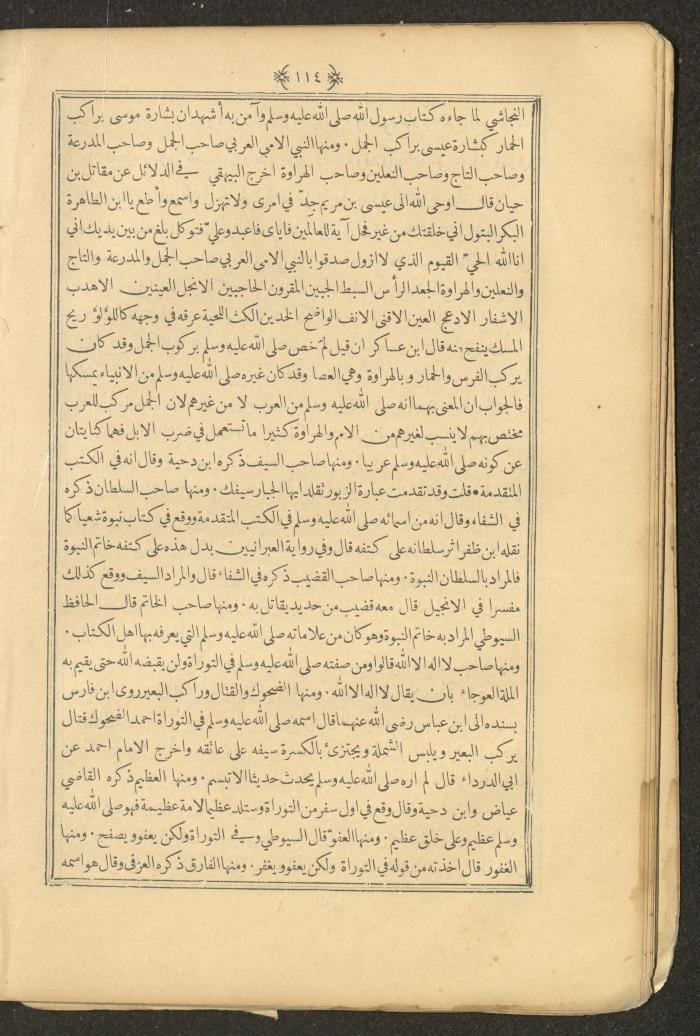 ١١٤
النجاشي لما جاءه كتاب رسول الله صلى الله عليه وسلم وآمن به أشهد ان بشارة موسى براكب
الحمار كبشارة عيسى براكب الجمل ۰ ومنها النبي الامي العربي صاحب الجمل وصاحب المدرعة
وصاحب التاج وصاحب النعلين وصاحب الهراوة اخرج البيهقي في الدلائل عن مقاتل بن
حيان قال اوحى الله الى عيسى بن مريم جِدّ في امرى ولا تهزل واسمع وأطع يا ابن الطاهرة
البكر البتول اني خلقتك من غير فحل آية للعالمين فاياى فاعبد وعليّ فتوكل بلغ من بين يديك اني
انا الله الحيّ القيوم الذي لا ازول صدقوا بالنبي الامى العربي صاحب الجمل والمدرعة والتاج
والنعلين والهراوة الجعد الرأس السبط الجبين المقرون الحاجبين الانجل العينين الاهدب
الاشفار الادعج العين الاقنى الانف الواضح الخدين الكث اللحية عرقه في وجهه كاللؤلؤ ريح
المسك ينفح منه قال ابن عساكر ان قيل لم خص صلى الله عليه وسلم بركوب الجمل وقد كان
يركب الفرس والحمار وبالهراوة وهي العصا وقد كان غيره صلى الله عليه وسلم من الانبياء يمسكها
فالجواب ان المعنى بهما انه صلى الله عليه وسلم من العرب لا من غيرهم لان الجمل مركب للعرب
مختص بهم لا ينسب لغيرهم من الامم والهراوة كثيرا ما تستعمل في ضرب الابل فهما كنايتان
عن كونه صلى الله عليه وسلم عربيا ۰ ومنها صاحب السيف ذكره ابن دحية وقال انه في الكتب
المتقدمة • قلت وقد تقدمت عبارة الزبور تقلد ايها الجبار سيفك ۰ ومنها صاحب السلطان ذكره
في الشفاء وقال انه من اسمائه صلى الله عليه وسلم في الكتب المتقدمة ووقع في كتاب نبوة شعيا كما
نقله ابن ظفر اثر سلطانه على كتفه قال وفي رواية العبرانيين بدل هذه على كتفه خاتم النبوة
فالمراد بالسلطان النبوة ۰ ومنها صاحب القضيب ذكره في الشفاء قال والمراد السيف ووقع كذلك
مفسرا في الانجيل قال معه قضيب من حديد يقاتل به ۰ ومنها صاحب الخاتم قال الحافظ
السيوطي المراد به خاتم النبوة وهو كان من علاماته صلى الله عليه وسلم التي يعرفه بها اهل الكتاب ۰
ومنها صاحب لا اله الا الله قالوا ومن صفته صلى الله عليه وسلم في التوراة ولن يقبضه الله حتى يقيم به
الملة العوجاء بان يقال لا اله الا الله ۰ ومنها الضحوك والقتال وراكب البعير روى ابن فارس
بسنده الى ابن عباس رضى الله عنهما قال اسمه صلى الله عليه وسلم في التوراة احمد الضحوك قتال
يركب البعير ويلبس الشملة ويجتزئ بالكسرة سيفه على عاتقه واخرج الامام احمد عن
ابي الدرداء قال لم اره صلى الله عليه وسلم يحدث حديثا الا تبسم ۰ ومنها العظيم ذكره القاضي
عياض وابن دحية وقال وقع في اول سفر من التوراة وستلد عظيما لامة عظيمة فهو صلى الله عليه
وسلم عظيم وعلى خلق عظيم ۰ ومنها العفوّ قال السيوطي وفي التوراة ولكن يعفو ويصفح ۰ ومنها
الغفور قال اخذته من قوله في التوراة ولكن يعفو ويغفر ۰ ومنها الفارق ذكره العزفى وقال هو اسمه